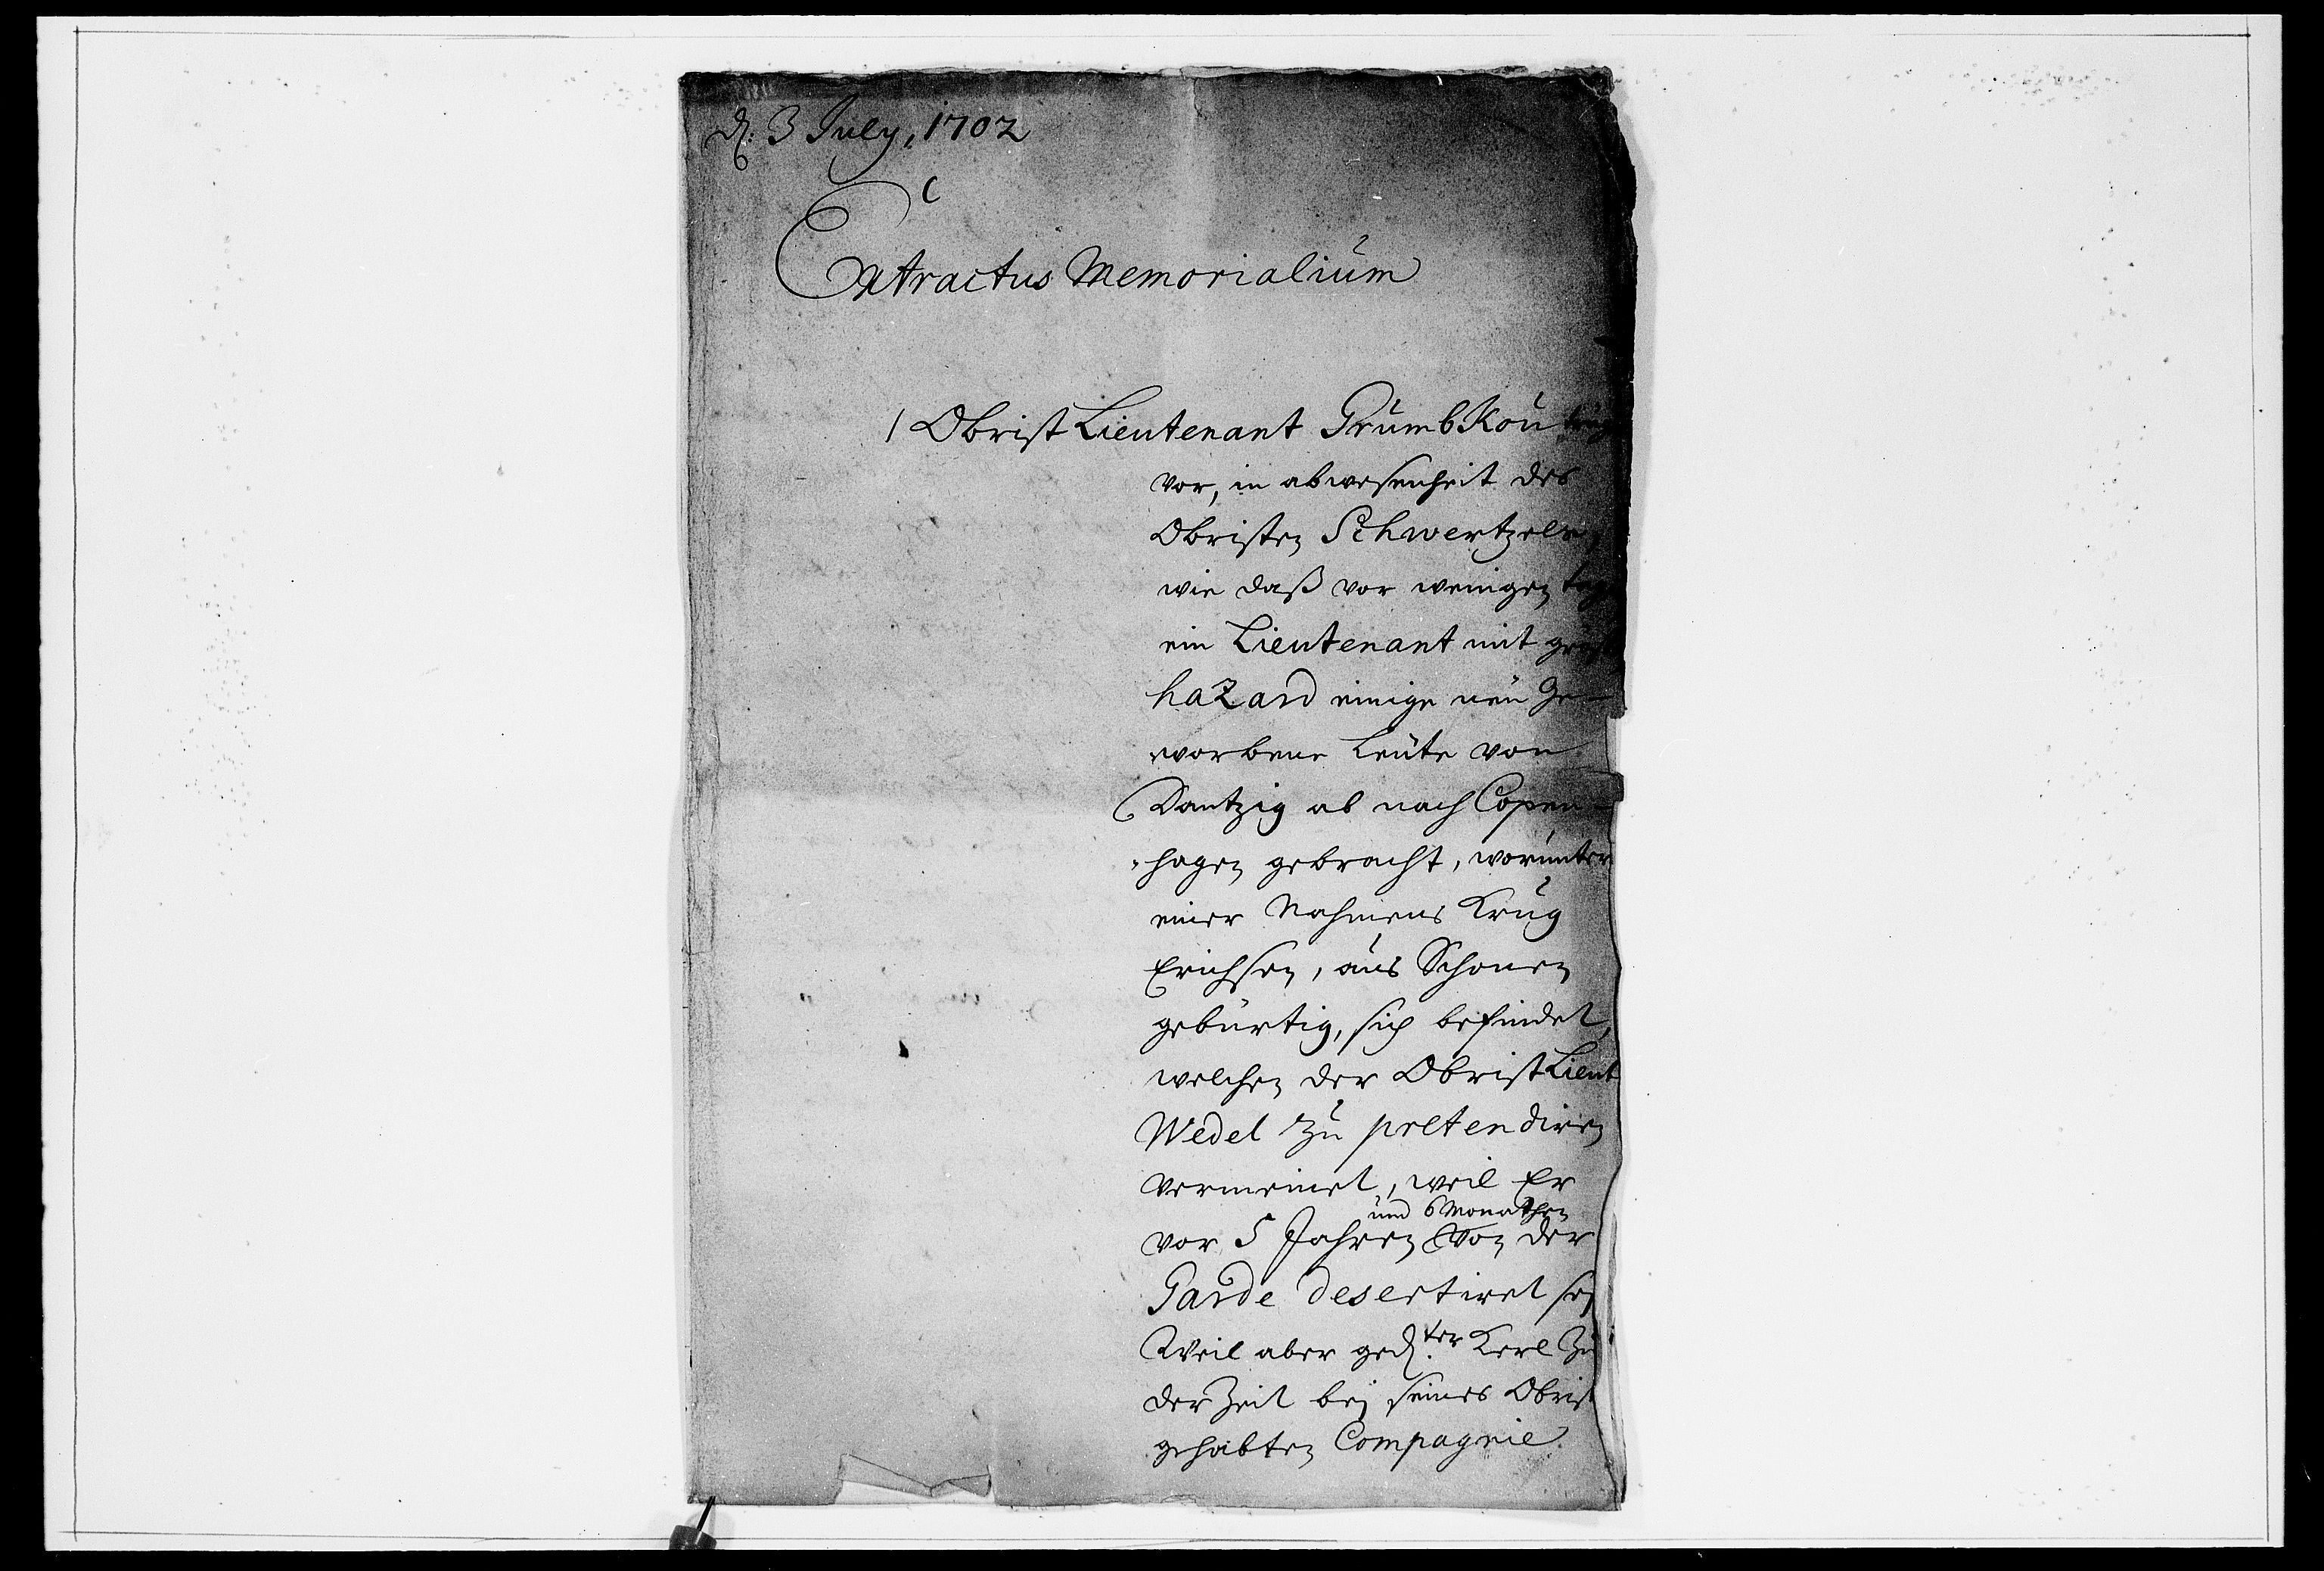 d. 3 July, 1702
Extractus Memorialium
1 Obrist Lieutenant Grumbkou träg
vor, in abwesenheit des
Obristen Schwertzels,
wie daß vor wenigen tag
ein Lieutenant mit groß
hazard einige neu Ge-
worbene Leute von
Dantzig ab nach Copen-
hagen gebracht, worunter
einer Nahmens Krug
Erichsen, aus Schonen
gebürtig, sich befindet,
welchen der Obrist Lieut
Wedel zu pretendiren
vermeinet, weil Er
und 6 Monathen
vor 5 Jahren von der
Garde desertiret sey
Weil aber ged.ter Kerl Zu
der Zeit bey seines Obrist
gehabten Compagnie